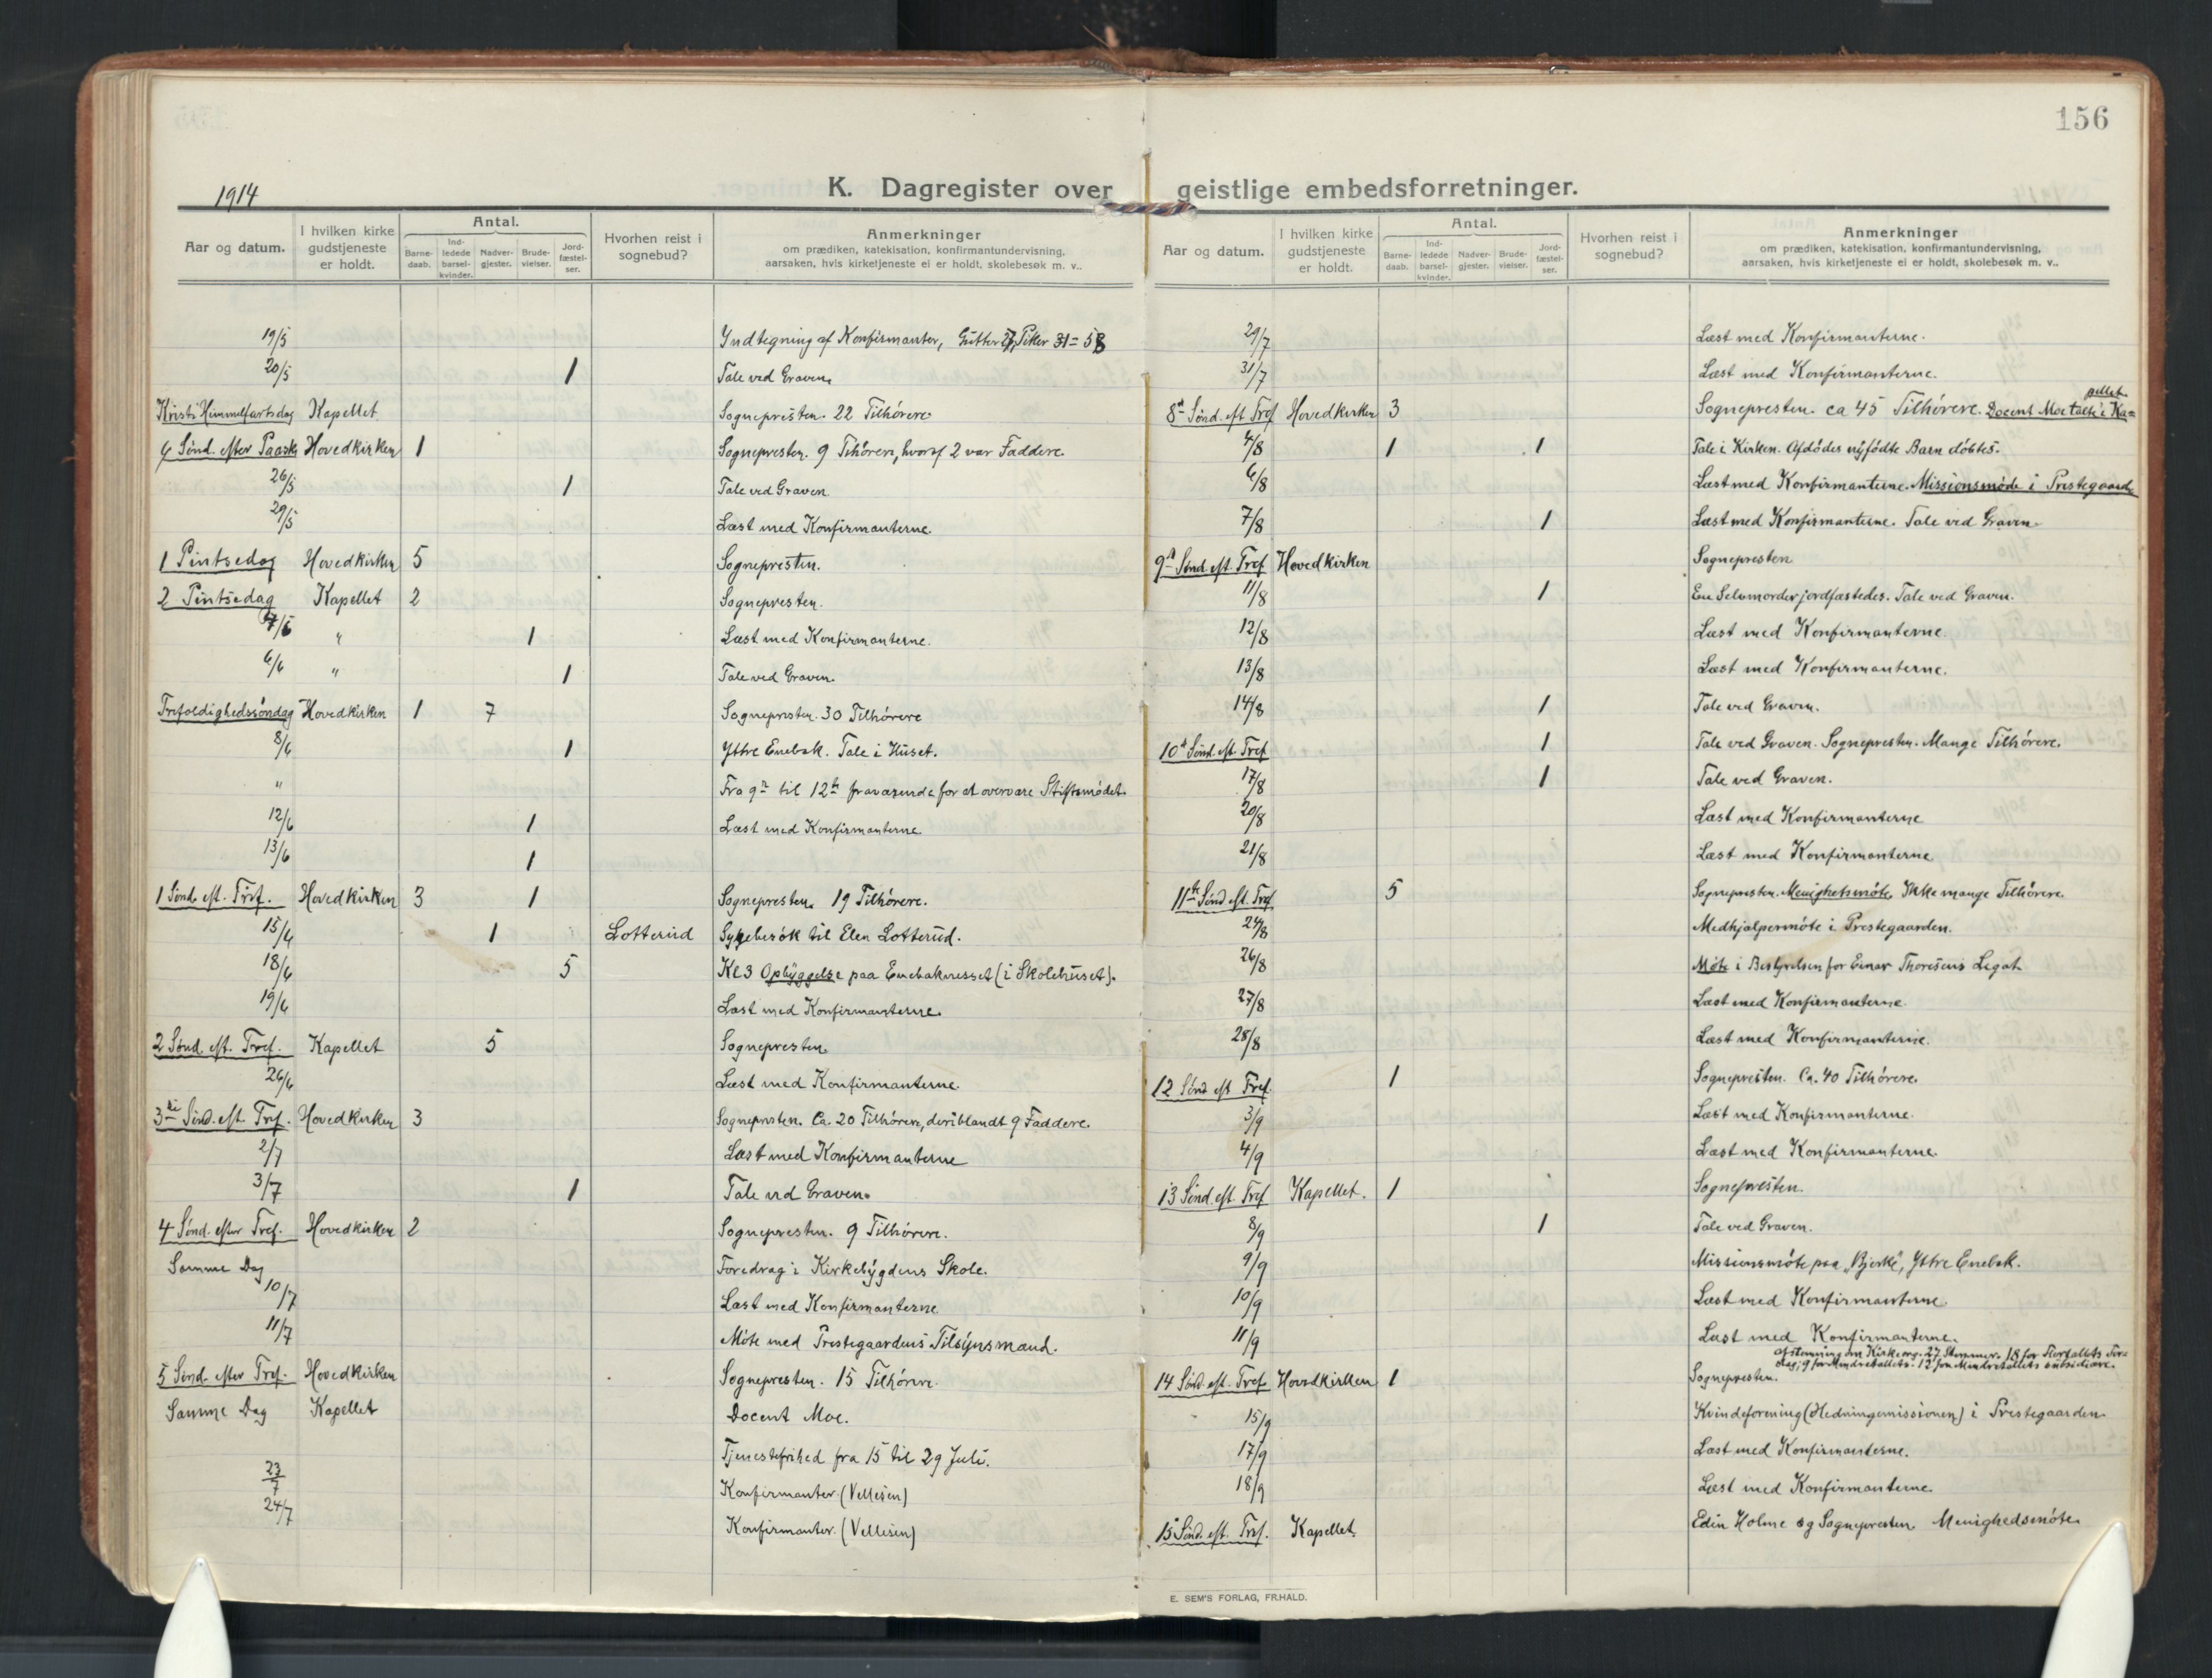 156
1914
K. Dagregister over geistlige embedsforretninger.
Aar og datum.
I hvilken kirke gudstjeneste er holdt.
Antal.
Barne-daab.
Ind-ledede barsel-kvinder.
Nadver-gjester.
Brude-vielser.
Jord-fæstel-ser.
Hvorhen reist i sognebud?
Anmerkninger
om prædiken, katekisation, konfirmantundervisning,
aarsaken, hvis kirketjeneste ei er holdt, skolebesøk m. v..
19/5 Indtegning af Konfirmanter, Gutter 27, Piker 31 = 58
20/5 1 Tale ved Graven.
Kristi Himmelfartsdag Kapellet Sognepresten. 22 Tilhörere.
6 Sönd. efter Paaske Hovedkirken 1 Sognepresten. 9 Tihörere, hvoraf 2 var Faddere.
26/5 1 Tale ved Graven
29/5 Læst med Konfirmanterne.
1 Pintsedag Hovedkirken 5 Sognepresten.
2 Pintsedag Kapellet 2 Sognepresten.
" 1 Læst med Konfirmanterne.
6/6 " 1 Tale ved Graven.
Trefoldighedssöndag Hovedkirken 1 7 Sognepresten. 30 Tilhörere
8/6 1 Ytre Enebak. Tale i Huset.
" Fra 9de til 12te fraværende for at overvære Stiftsmødet.
12/6 1 Læst med Konfirmanterne
13/6 1
1 Sönd. eft. Tref. Hovedkirken 3 1 Sognepresten. 19 Tilhörere.
15/6 1 Lotterud Sykebesök til Elen Lotterud.
18/6 5 Kl 3 Opbyggelse paa Enebaknesset (i Skolehuset).
19/6 Læst med Konfirmanterne.
2 Sönd. eft. Tref. Kapellet 5 Sognepresten.
26/6 Læst med Konfirmanterne.
3die Sönd. eft. Tref. Hovedkirken 3 Sognepresten. Ca. 20 Tilhörere, deriblandt 9 Faddere.
2/7 Læst med Konfirmanterne
3/7 1 Tale ved Graven.
4 Sönd. efter Tref. Hovedkirken 2 Sognepresten. 9 Tilhörere.
Samme Dag Foredrag i Kirkebygdens Skole.
10/7 Læst med Konfirmanterne
11/7 Möte med Prestegaardens Tilsynsmænd.
5 Sönd. efter Tref. Hovedkirken Sognepresten. 15 Tilhörere.
Samme Dag Kapellet Docent Moe.
Tjenestefrihed fra 15 til 29 Juli.
23/7 Konfirmanter. (Vellesen)
24/7 Konfirmanter. (Vellesen)
Aar og datum.
I hvilken kirke gudstjeneste er holdt.
Antal.
Barne-daab.
Ind-ledede barsel-kvinder.
Nadver-gjester.
Brude-vielser.
Jord-fæstel-ser.
Hvorhen reist i sognebud?
Anmerkninger
om prædiken, katekisation, konfirmantundervisning,
aarsaken, hvis kirketjeneste ei er holdt, skolebesøk m. v..
29/7 Læst med Konfirmanterne.
31/7 Læst med Konfirmanterne.
8de Sönd. eft. Tref Hovedkirken 3 Sognepresten. ca 45 Tilhörere. Docent Moe talte i Ka=
pellet.
4/8 1 1 Tale i Kirken. Afdödes nyfödte Barn döbtes.
6/8 Læst med Konfirmanterne. Missionsmöde i Prestegaarden
7/8 1 Læst med Konfirmanterne. Tale ved Graven.
9de Sönd. eft. Tref Hovedkirken Sognepresten
11/8 1 En Selvmorder jordfæstedes. Tale ved Graven.
12/8 Læst med Konfirmanterne.
13/8 Læst med Konfirmanterne.
14/8 1 Tale ved Graven.
10de Sönd. eft. Tref 1 Tale ved Graven. Sognepresten. Mange Tilhörere.
17/8 1 Tale ved Graven.
20/8 Læst med Konfirmanterne
21/8 Læst med Konfirmanterne
11te Sönd eft. Tref 5 Sognepresten. Menighetsmöte. Ikke mange Tilhörere.
24/8 Medhjælpermöte i Prestegaarden.
26/8 Möte i Bestyrelsen for Einar Thoresens Legat
27/8 Læst med Konfirmanterne.
28/8 Læst med Konfirmanterne.
12 Sönd eft Tref. 1 Sognepresten. Ca. 40 Tilhörere.
3/9 Læst med Konfirmanterne.
4/9 Læst med Konfirmanterne.
13 Sönd. eft. Tref Kapellet. 1 Sognepresten.
8/9 1 Tale ved Graven.
9/9 Missionsmöte paa "Bjerke", Ytre Enebak.
10/9 Læst med Konfirmanterne.
11/9 Læst med Konfirmanterne.
afstemning om Kirkeorg. 27 Stemmer. 18 for Flertallets For=
slag, 9 for Mindretallets. 12 for Mindretallets subsidiære.
14 Sönd. eft. Tref Hovedkirken 1 Sognepresten.
15/9 Kvindeforening (Hedningemissionen) i Prestegaarden
17/9 Læst med Konfirmanterne.
18/9 Læst med Konfirmanterne
15 Sönd. eft. Tref. Kapellet. Edin Holme og Sognepresten Menighedsmöte.
E. SEM'S FORLAG, FR.HALD.